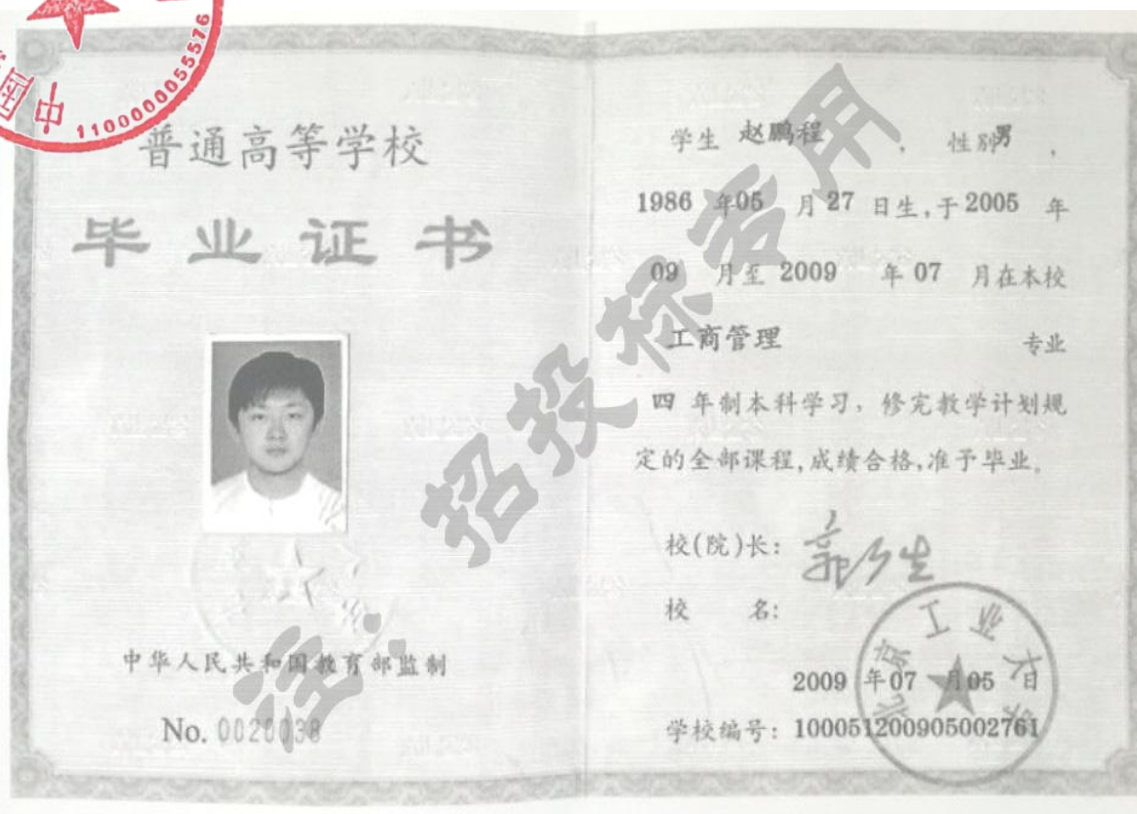 中国
1100000055576
普通高等学校
毕业证书
中华人民共和国教育部监制
No. 0020038
学生 赵鹏程 , 性别男 ,
1986 年05 月 27 日生,于2005 年
09 月至 2009 年 07 月在本校
工商管理 专业
四 年制本科学习，修完教学计划规
定的全部课程,成绩合格,准予毕业。
校(院)长:
校 名:
北京工业大学
2009 年07 月05 日
学校编号: 100051200905002761
注：招投标专用